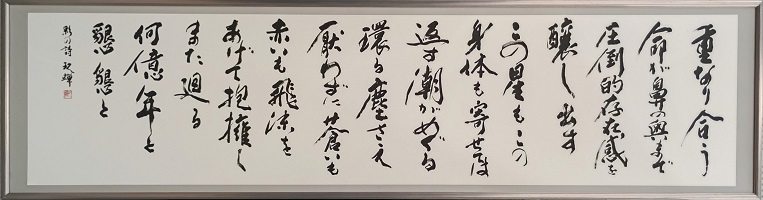 重なり合う
命が鼻の奥まで
圧倒的存在感を
醸し出す
この星もこの
身体も寄せては
返す潮がめぐる
環る塵さえ
厭わずに蒼いも
赤いも飛沫を
あげて抱擁し
また廻る
何億年と
懇懇と